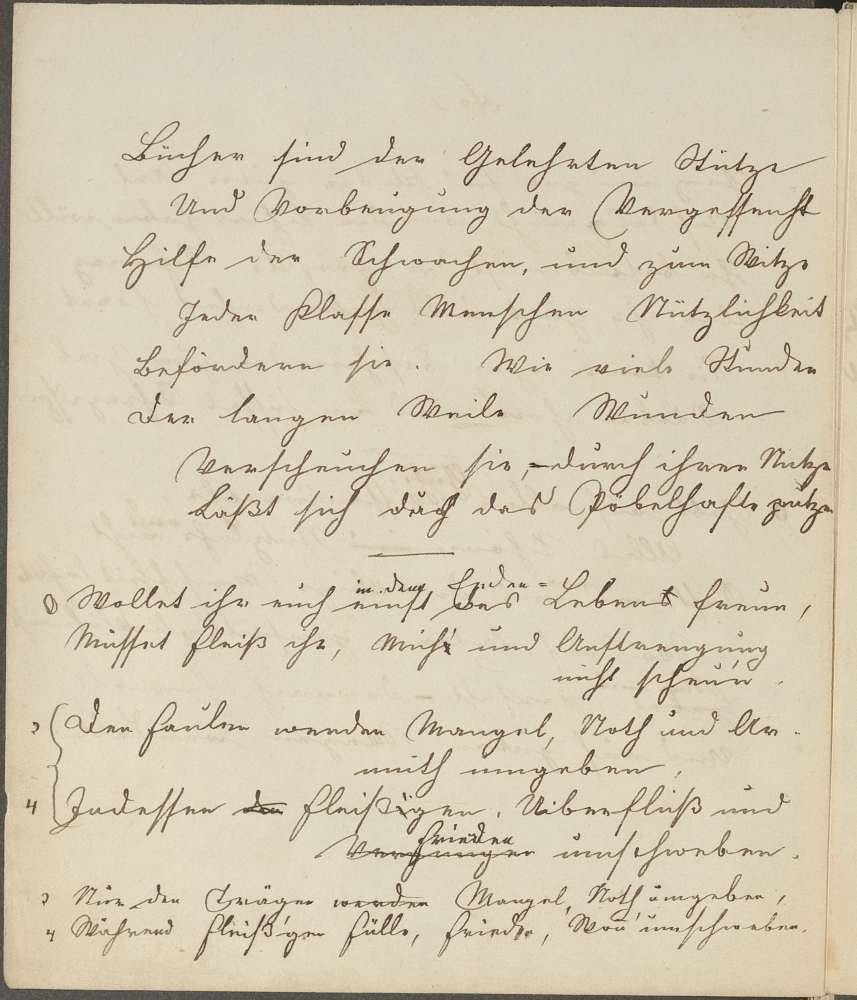 Bücher sind der Gelehrten Stütze
Und Vorbeugung der Vergessenht
Hilfe der Schwachen, und zum Witze
Jeder Klasse Menschen Nützlichkeit
Befördern sie. Wie viele Stunden
Der langen Weile Wunden
Verscheuchen sie, durch ihren Nutze
Läßt sich das Pöbelhafte putze
in dem Erden=
Wollet ihr euch einst des Lebens freun,
Müsset Fleiß ihr, Müh' und Anstrengung
nicht scheu'n.
3 Den Faulen werden Mangel, Noth und Ar-
muth umgeben,
4 Indessen den Fleiß'gen, Uiberfluß und
Frieden
umschweben.
3 Nur den Trägen werden Mangel, Noth umgeben,
4 Während Fleiß'gen Fülle, Friede, Won' umschweben.